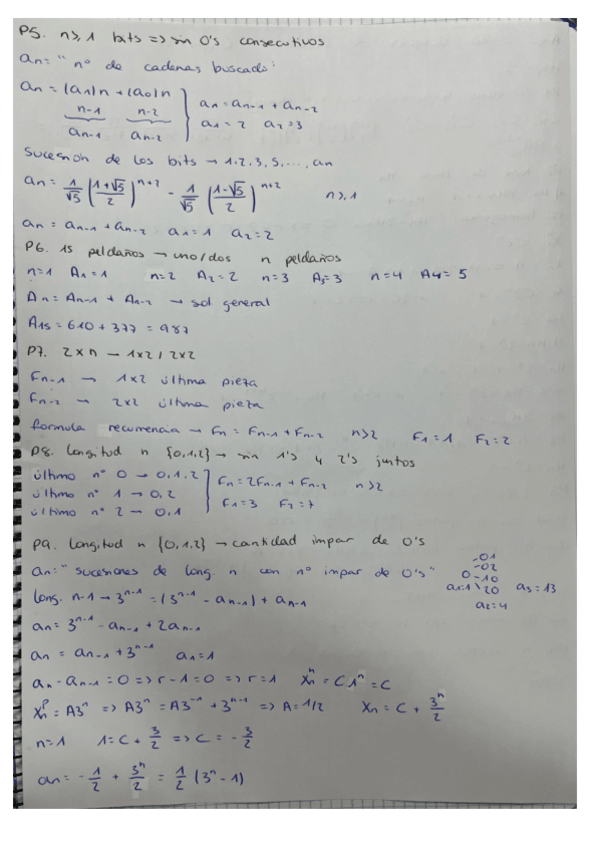 P5. n≥1 bits => sin 0's consecutivos
an = "nº de cadenas buscado"
an = |a1|n + |a0|n } an = an-1 + an-2
n-1 n-2 a1 = 2 a2 = 3
an-1 an-2
Sucesión de los bits → 1, 2, 3, 5, ..., an
an = 1/√5 ((1+√5)/2)^n+2 - 1/√5 ((1-√5)/2)^n+2 n≥1
an = an-1 + an-2 a1 = 1 a2 = 2
P6. 15 peldaños → uno/dos n peldaños
n=1 A1=1 n=2 A2=2 n=3 A3=3 n=4 A4=5
An = An-1 + An-2 → sol general
A15 = 610 + 377 = 987
P7. 2xn → 1x2 / 2x2
Fn-1 → 1x2 última pieza
Fn-2 → 2x2 última pieza
formula recurrencia → Fn = Fn-1 + Fn-2 n>2 F1=1 F2=2
P8. Longitud n {0,1,2} → sin 1's y 2's juntos
último nº 0 → 0,1,2 } Fn = 2Fn-1 + Fn-2 n>2
último nº 1 → 0,2 F1=3 F2=7
último nº 2 → 0,1
P9. Longitud n {0,1,2} → cantidad impar de 0's
an = "sucesiones de long. n con nº impar de 0's"
-01
-02
0 -10
a1=1 20 a3=13
a2=4
long. n-1 → 3^n-1 = (3^n-1 - an-1) + an-1
an = 3^n-1 - an-1 + 2an-1
an = an-1 + 3^n-1 a1=1
an - an-1 = 0 => r-1=0 => r=1 Xn^h = C1^n = C
Xn^p = A3^n => A3^n = A3^n-1 + 3^n-1 => A=1/2 Xn = C + 3^n/2
n=1 1 = C + 3/2 => C = -3/2
an = -1/2 + 3^n/2 = 1/2 (3^n - 1)